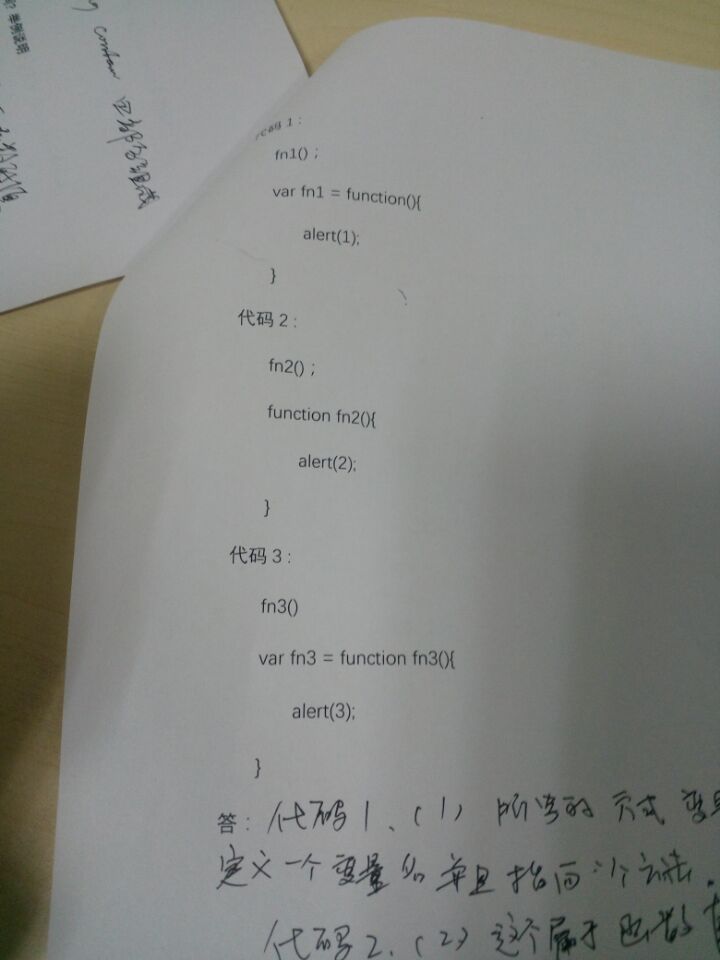 举例说明
1：
fn1()；
var fn1 = function(){
alert(1);
}
代码 2：
fn2()；
function fn2(){
alert(2);
}
代码 3：
fn3()
var fn3 = function fn3(){
alert(3);
}
答：代码1、(1) 所谓的 方式
定义一个变量名 并且指向 个方法.
代码2、(2) 这个属于 函数